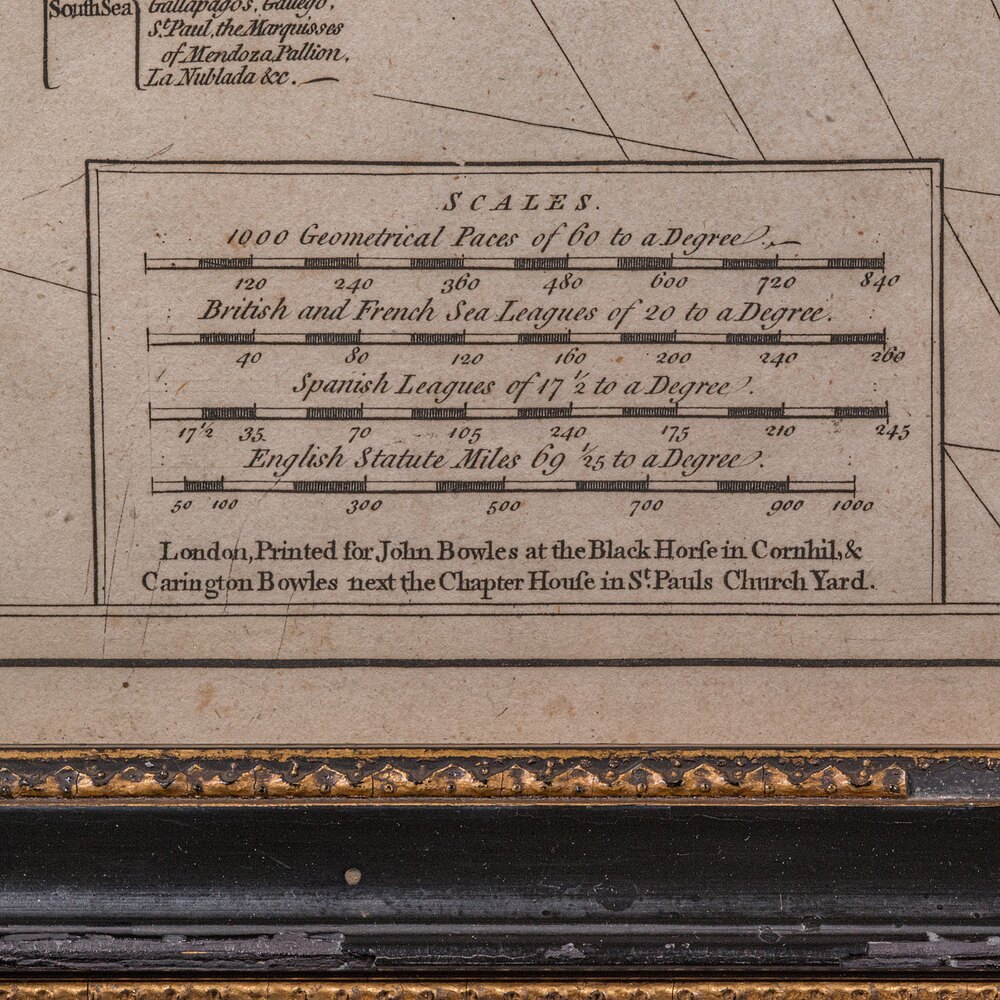 South Sea
Gallapagos, Gallego,
St. Paul, the Marquisses
of Mendoza, Pallion,
La Nublada &c.
SCALES.
1000 Geometrical Paces of 60 to a Degree.
120 240 360 480 600 720 840
British and French Sea Leagues of 20 to a Degree.
40 80 120 160 200 240 260
Spanish Leagues of 17 1/2 to a Degree.
17 1/2 35 70 105 240 175 210 245
English Statute Miles 69 1/25 to a Degree.
50 100 300 500 700 900 1000
London, Printed for John Bowles at the Black Horſe in Cornhil, &
Carington Bowles next the Chapter Houſe in St. Pauls Church Yard.